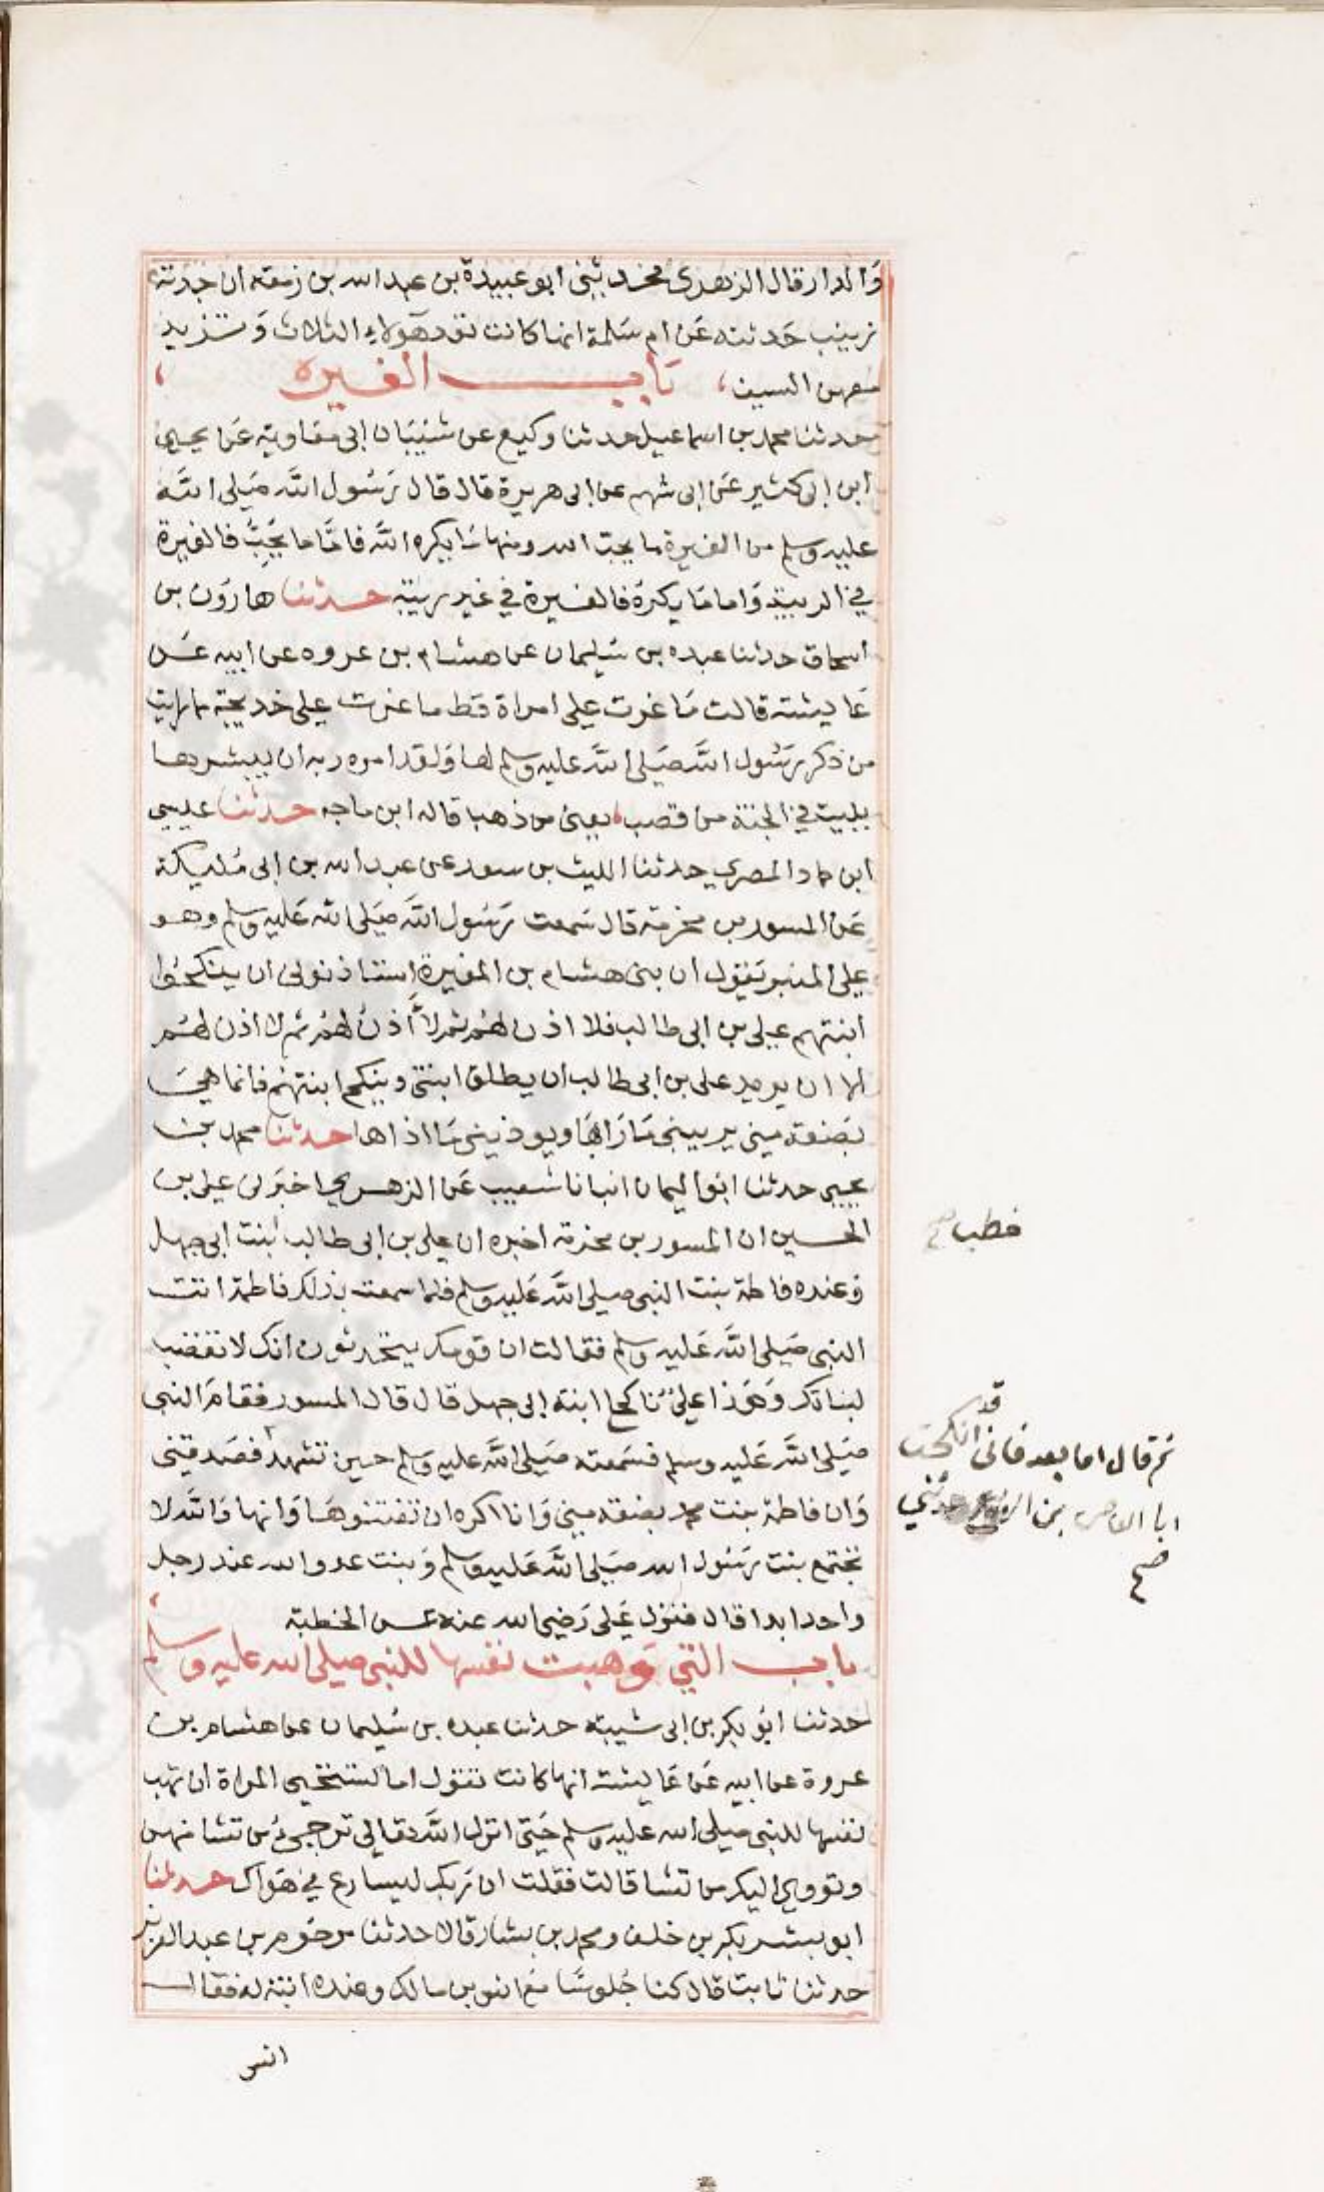 والدار قال الزهري فحدثني ابو عبيدة بن عبد الله بن زمعه ان جدته
زينب حدثته عن ام سلمة انها كانت تعد هولاء الثلاث وتزيد
معهن السيف، باب الغيره ،
حدثنا محمد بن اسماعيل حدثنا وكيع عن شيبان ابي معاوية عن يحيى
ابن ابي كثير عن ابي شهم عن ابي هريرة قال قال رسول الله صلى الله
عليه وسلم من الغيرة ما يحب الله ومنها ما يكره الله فاما ما يحب فالغيرة
في الريبة واما ما يكره فالغيرة في غير ريبة حدثنا هارون بن
اسحاق حدثنا عبده بن سليمان عن هشام بن عروه عن ابيه عن
عايشة قالت ما غرت على امراة قط ما غرت على خديجة مما رايت
من ذكر رسول الله صلى الله عليه وسلم لها ولقد امره ربه ان يبشرها
ببيت في الجنة من قصب، يعني من ذهب قاله ابن ماجه حدثنا عيسى
ابن حماد المصري حدثنا الليث بن سعد عن عبد الله بن ابي مليكة
عن المسور بن مخرمة قال سمعت رسول الله صلى الله عليه وسلم وهو
على المنبر يقول ان بني هشام بن المغيرة استاذنوني ان ينكحوا
ابنتهم علي بن ابي طالب فلا اذن لهم ثم لا اذن لهم ثم لا اذن لهم
الا ان يريد علي بن ابي طالب ان يطلق ابنتي وينكح ابنتهم فانما هي
بضعة مني يريبني ما رابها ويوذيني ما اذاها حدثنا محمد بن
يحيى حدثنا ابو اليمان انبانا شعيب عن الزهري اخبرني علي بن
الحسين ان المسور بن مخرمة اخبره ان علي بن ابي طالب بنت ابي جهل
خطب صح
وعنده فاطمة بنت النبي صلى الله عليه وسلم فلما سمعت بذلك فاطمة اتت
النبي صلى الله عليه وسلم فقالت ان قومك يتحدثون انك لا تغضب
لبناتك وهذا علي ناكحا ابنة ابي جهل قال قال المسور فقام النبي
صلى الله عليه وسلم فسمعته صلى الله عليه وسلم حين تشهد فصدقني
ثم قال اما بعد فاني قد انكحت
ابا العاص بن الربيع فحدثني
صح
وان فاطمة بنت محمد بضعة مني وانا اكره ان تفتنوها وانها والله لا
تجتمع بنت رسول الله صلى الله عليه وسلم وبنت عدو الله عند رجل
واحد ابدا قال فنزل علي رضي الله عنه عن الخطبة
باب التي وهبت نفسها للنبي صلى الله عليه وسلم
حدثنا ابو بكر بن ابي شيبة حدثنا عبده بن سليمان عن هشام بن
عروة عن ابيه عن عايشة انها كانت تقول اما تستحيي المراة ان تهب
نفسها للنبي صلى الله عليه وسلم حتى انزل الله تعالى ترجئ من تشا منهن
وتووي اليك من تشا قالت فقلت ان ربك ليسارع في هواك حدثنا
ابو بشر بكر بن خلف ومحمد بن بشار قالا حدثنا مرحوم بن عبد العزيز
حدثنا ثابت قال كنا جلوسا مع انس بن مالك وعنده ابنة له فقال
انس